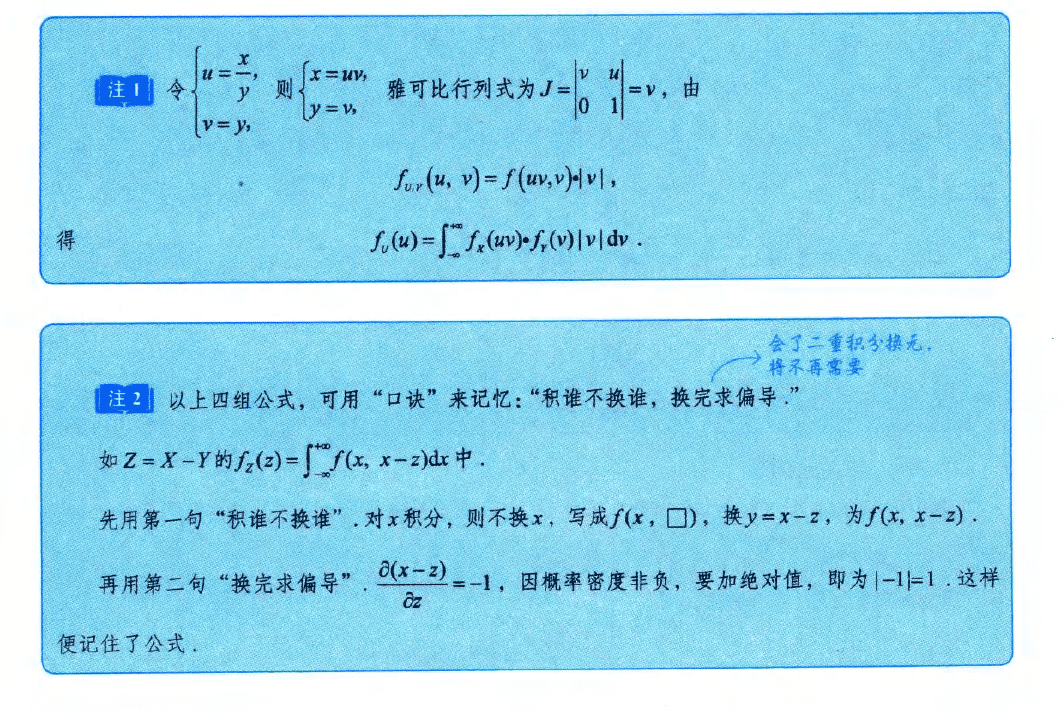 注1 令{u=x/y, v=y, 则{x=uv, y=v, 雅可比行列式为J=|v u; 0 1|=v，由
f_{U,V}(u, v)=f(uv,v)•|v|，
得 f_U(u)=∫_{-∞}^{+∞} f_X(uv)•f_Y(v)|v|dv .
会了二重积分换元.
将不再需要
注2 以上四组公式，可用“口诀”来记忆：“积谁不换谁，换完求偏导.”
如Z=X-Y的f_Z(z)=∫_{-∞}^{+∞} f(x, x-z)dx中.
先用第一句“积谁不换谁”.对x积分，则不换x，写成f(x，□)，换y=x-z，为f(x, x-z).
再用第二句“换完求偏导”. ∂(x-z)/∂z=-1，因概率密度非负，要加绝对值，即为|-1|=1.这样
便记住了公式.